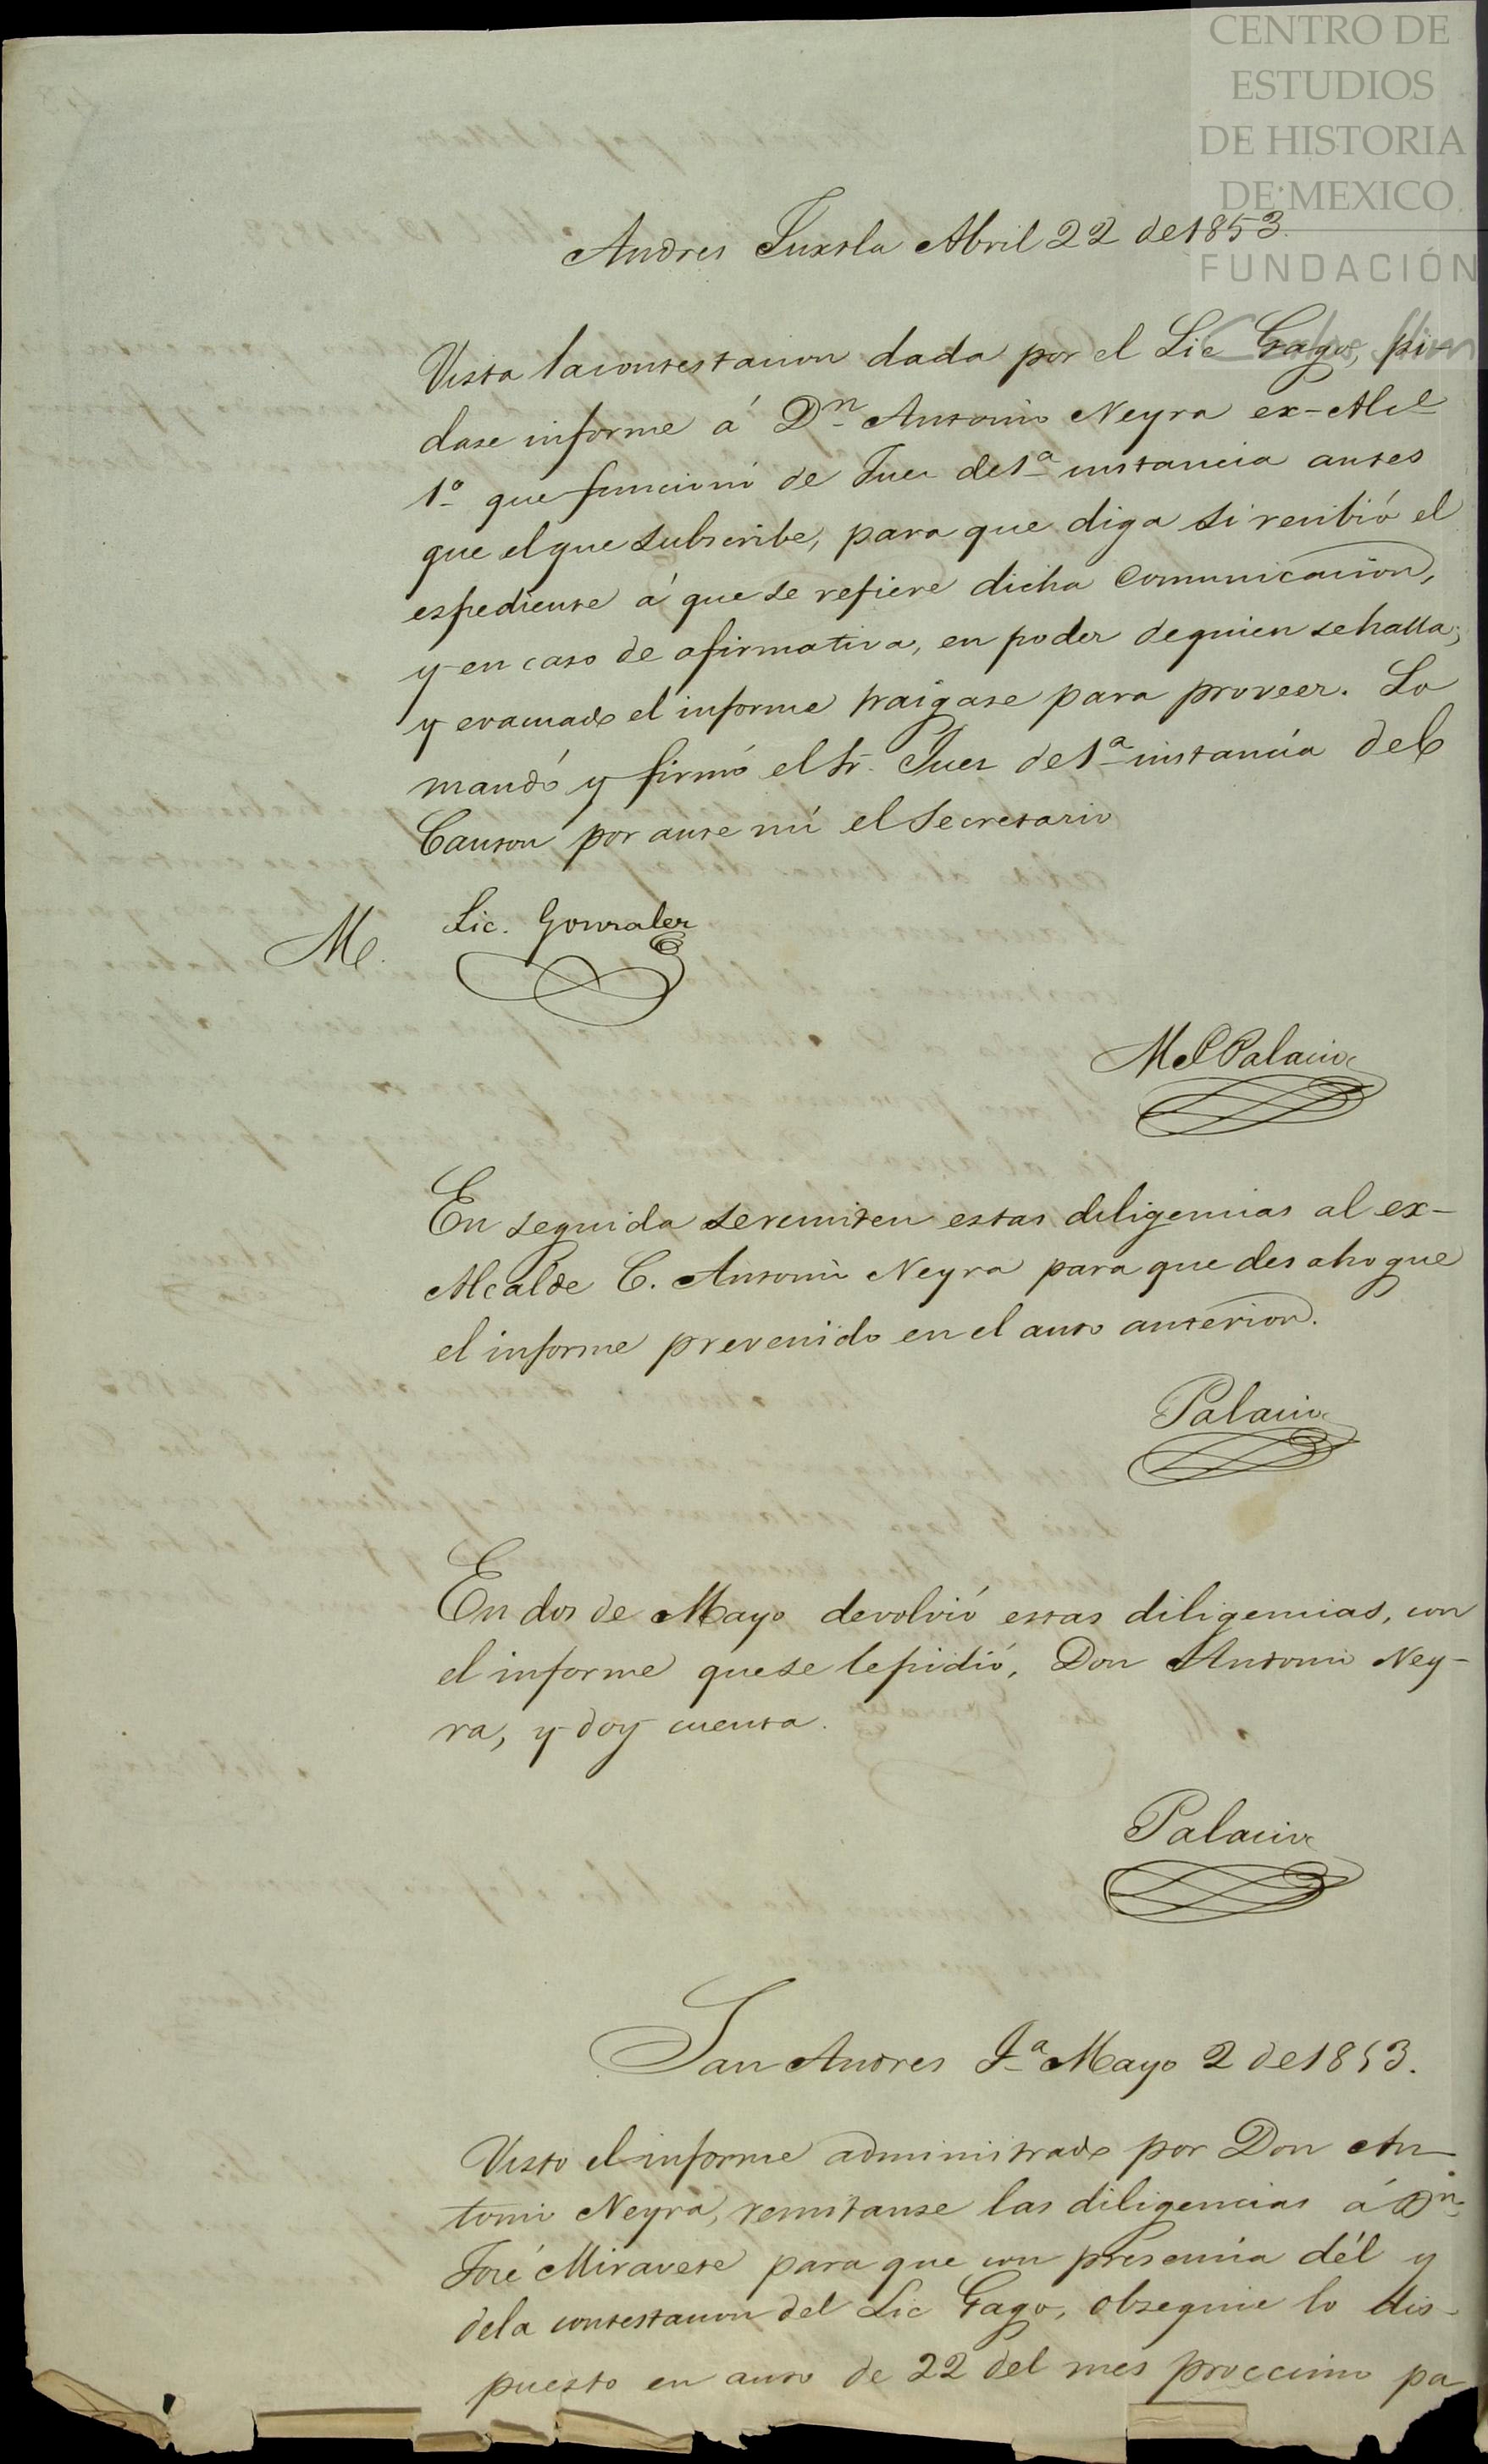 CENTRO DE
ESTUDIOS
DE HISTORIA
DE MEXICO
FUNDACIÓN
Carlos Slim
Andres Tuxtla Abril 22 de 1853.
Vista la contestacion dada por el Lic Gago, pi-
dase informe á Dn Antonio Neyra ex-Alce
1º que funcionó de Juez de 1ª instancia antes
que el que subscribe, para que diga si recibió el
espediente á que se refiere dicha comunicacion,
y en caso de afirmativa, en poder de quien se halla;
y evacuado el informe traigase para proveer. Lo
mandó y firmó el Sr. Juez de 1ª instancia del
Canton por ante mí el Secretario
M. Lic. Gonzalez
M P Palacio
En seguida se remiten estas diligencias al ex-
Alcalde C. Antonio Neyra para que desahogue
el informe prevenido en el auto anterior.
Palacio
En dos de Mayo devolvió estas diligencias, con
el informe que se le pidió, Don Antonio Ney-
ra, y doy cuenta.
Palacio
San Andres Ja Mayo 2 de 1853.
Visto el informe administrado por Don An-
tonio Neyra, remitanse las diligencias á Dn
José Miravete para que con presencia dél y
de la contestacion del Lic Gago, obsequie lo dis-
puesto en auto de 22 del mes proccimo pa